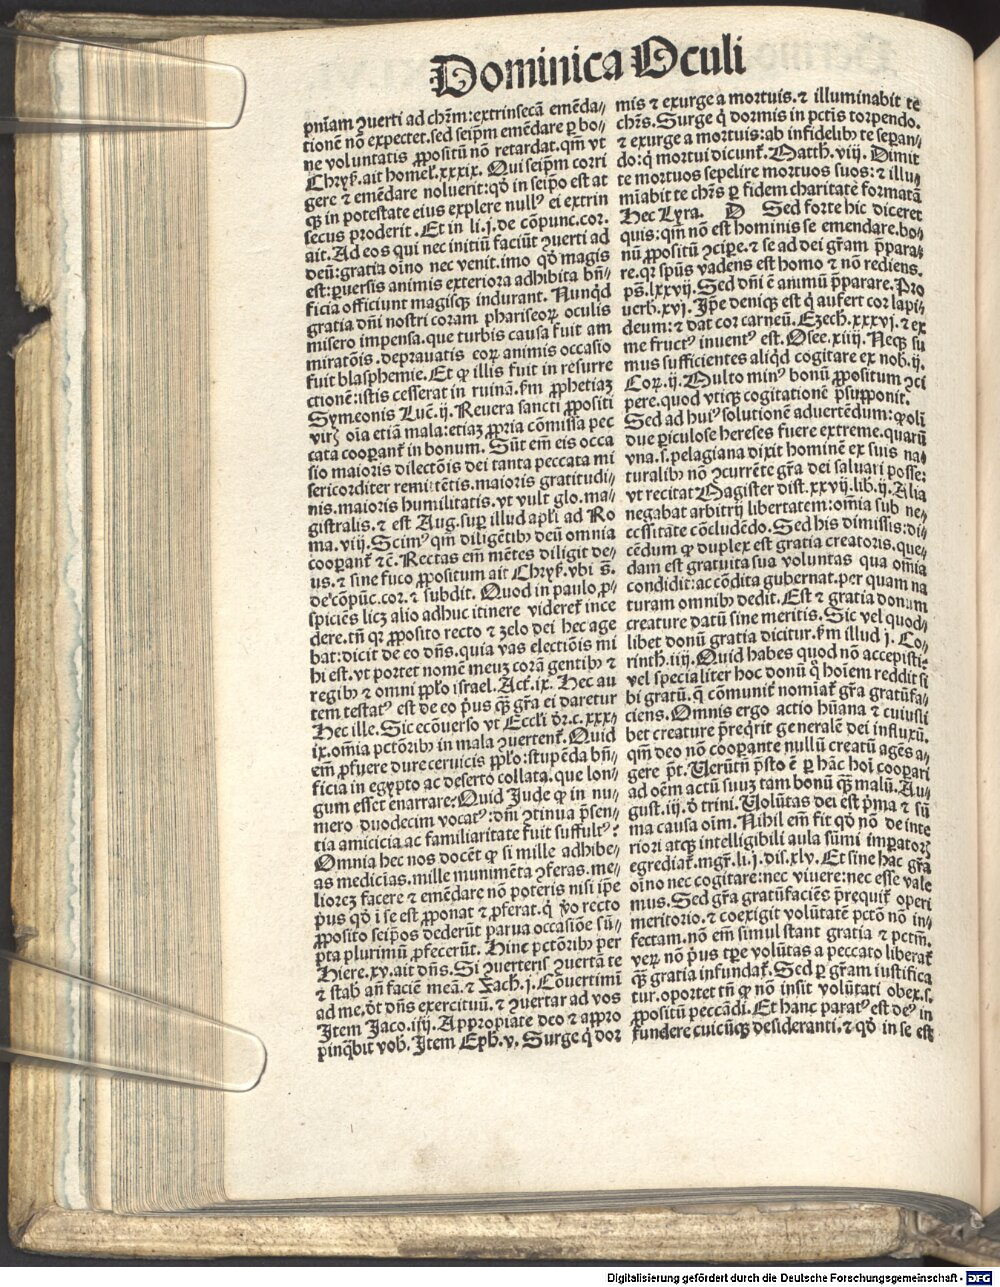 Dominica Oculi
pn̄iam ꝯuerti ad chr̄m:extrinsecā emēda⸗
tionē nō expectet.sed seip̄m emēdare ꝑ bo⸗
ne voluntatis ꝓpositū nō retardat.qm̄ vt
Chryẜ.ait homeł.xxxix. Qui seip̄m corri
gere ⁊ emēdare noluerit:qđ in seip̄o est at
qꝫ in potestate eius explere null⁹ ei extrin
secus proderit. Et in li.j.de cōpunc.cor.
ait. Ad eos qui nec initiū faciūt ꝯuerti ad
deū:gratia oīno nec venit.imo qđ magis
est:ꝑuersis animis exteriora adhibita bn̄⸗
ficia officiunt magisqꝫ indurant. Nunqͥd
gratia dn̄i nostri coram phariseoꝝ oculis
misero impensa.que turbis causa fuit am
miratōis.deprauatis eoꝝ animis occasio
fuit blasphemie. Et ꝙ illis fuit in resurre
ctionē:istis cesserat in ruinā.ẜm ꝓphetiaꝫ
Symeonis Luč.ij. Reuera sancti ꝓpositi
viri oīa etiā mala:etiaꝫ ꝓpria cōmissa pec
cata cooꝑant̃ in bonum. Sūt em̄ eis occa
sio maioris dilectōis dei tanta peccata mi
sericorditer remittētis.maioris gratitudi⸗
nis.maioris humilitatis.vt vult glo.ma⸗
gistralis.⁊ est Aug.suꝑ illud apl̄i ad Ro
ma.viij. Scim⁹ qm̄ diligētibꝫ deū omnia
cooꝑant̃ ⁊č. Rectas em̄ mētes diligit de⸗
us.⁊ sine fuco ꝓpositum ait Chryẜ.vbi s̄.
de cōpūc.cor.⁊ subdit. Quod in paulo ꝓ⸗
spiciēs licꝫ alio adhuc itinere videret̃ ince
dere.tn̄ qꝛ ꝓposito recto ⁊ zelo dei hec age
bat:dicit de eo dn̄s.quia vas electiōis mi
hi est.vt portet nomē meuꝫ corā gentibꝫ ⁊
regibꝫ ⁊ omni pp̄lo israel. Act̃.ix. Hec au
tem testat⁹ est de eo pͥus qꝫ̄ gr̄a ei daretur
Hec ille. Sic ecōuerso vt Eccl̄i đr.c.xxx⸗
ix.om̄ia pctōribꝫ in mala ꝯuertent̃. Quid
em̄ ꝓfuere dure ceruicis pp̄lo:stupēda bn̄⸗
ficia in egypto ac deserto collata.que lon⸗
gum esset enarrare? Quid Jude ꝙ in nu⸗
mero duodecim vocat⁹:dn̄i ꝯtinua p̄sen⸗
tia amicicia ac familiaritate fuit suffult⁹?
Omnia hec nos docēt ꝙ si mille adhibe⸗
as medicīas.mille munimēta ꝯferas.me⸗
liorē facere ⁊ emēdare nō poteris nisi ip̄e
pͥus qđ ī se est ꝓponat ⁊ ꝓferat.qͥ ꝟo recto
ꝓposito seip̄os dederūt parua occasiōe sū⸗
pta plurimū ꝓfecerūt. Hinc pctōribꝫ per
Hiere.xv.ait dn̄s. Si ꝯuerteris ꝯuertā te
⁊ stab an̄ faciē meā.⁊ Zach.j. Cōuertimī
ad me.đt dn̄s exercituū.⁊ ꝯuertar ad vos
Item Jaco.iiij. Appropiate deo ⁊ appro
pinqͣbit vob. Item Eph.v. Surge qͥ dor
mis ⁊ exurge a mortuis.⁊ illuminabit te
chr̄s. Surge qͥ dormis in pctīs torpendo.
⁊ exurge a mortuis:ab infidelibꝫ te seꝑan⸗
do:qͥ mortui dicunt̃. Matth.viij. Dimit
te mortuos sepelire mortuos suos:⁊ illu⸗
mīabit te chr̄s ꝑ fidem charitate formatā
Hec Lyra. D Sed forte hic diceret
quis:qm̄ nō est hominis se emendare.bo⸗
nū ꝓpositū ꝯciꝑe.⁊ se ad dei gr̄am p̄para⸗
re.qꝛ sp̄us vadens est homo ⁊ nō rediens.
ps̄.lxxvij. Sed dn̄i ē animū p̄parare. Pro
uerb.xvj. Ip̄e denique est qͥ aufert cor lapi⸗
deum:⁊ dat cor carneū. Ezech.xxxvj.⁊ ex
me fruct⁹ inuent⁹ est. Osee.xiiij. Neqꝫ su
mus sufficientes aliqͥd cogitare ex nob.ij.
Coꝝ.ij. Multo min⁹ bonū ꝓpositum ꝯci
pere.quod vtiqꝫ cogitationē p̄supponit.
Sed ad hui⁹ solutionē aduertēdum:ꝙ olī
due ꝑiculose hereses fuere extreme.quarū
vna.s.pelagiana dixit hominē ex suis na⸗
turalibꝫ nō ꝯcurrēte gr̄a dei saluari posse:
vt recitat Magister dist.xxvij.lib.ij. Alia
negabat arbitrij libertatem:om̄ia sub ne⸗
cessitate cōcludēdo. Sed his dimissis:di⸗
cēdum ꝙ duplex est gratia creatoris.que⸗
dam est gratuita sua voluntas qua om̄ia
condidit:ac cōdita gubernat.per quam na
turam omnibꝫ dedit. Est ⁊ gratia donum
creature datū sine meritis. Sic vel quod⸗
libet donū gratia dicitur.ẜm illud j. Co⸗
rinth.iiij. Quid habes quod nō accepisti?
vel specialiter hoc donū qͦ hoīem reddit si
bi gratū.qͣ cōmunit̃ nomīat̃ gr̄a gratūfa⸗
ciens. Omnis ergo actio hūana ⁊ cuiusli
bet creature p̄reqͥrit generalē dei influxū.
qm̄ deo nō cooꝑante nullū creatū agēs a⸗
gere pt̄. Verūtn̄ p̄sto ē ꝑ hāc hoī cooꝑari
ad oēm actū suuꝫ tam bonū qꝫ̄ malū. Au⸗
gust.iij.đ trini. Volūtas dei est pͥma ⁊ sū
ma causa oīm. Nihil em̄ fit qđ nō de inte
riori atqꝫ intelligibili aula sūmi imꝑatoꝝ
egrediat̃.mgr̄.li.j.dis.xlv. Et sine hac gr̄a
oīno nec cogitare:nec viuere:nec esse vale
mus. Sed gr̄a gratūfaciēs p̄requirit̃ operi
meritorio.⁊ coexigit volūtatē pctō nō in⸗
fectam.nō em̄ simul stant gratia ⁊ pctm̄.
veꝝ nō pͥus tꝑe volūtas a peccato liberat̃
qꝫ̄ gratia infundat̃. Sed ꝑ gr̄am iustifica
tur.oportet tn̄ ꝙ nō insit volūtati obex.s.
ꝓpositū peccādi. Et hanc parat⁹ est de⁹ in
fundere cuicūqꝫ desideranti.⁊ qđ in se est
Digitalisierung gefördert durch die Deutsche Forschungsgemeinschaft - DFG